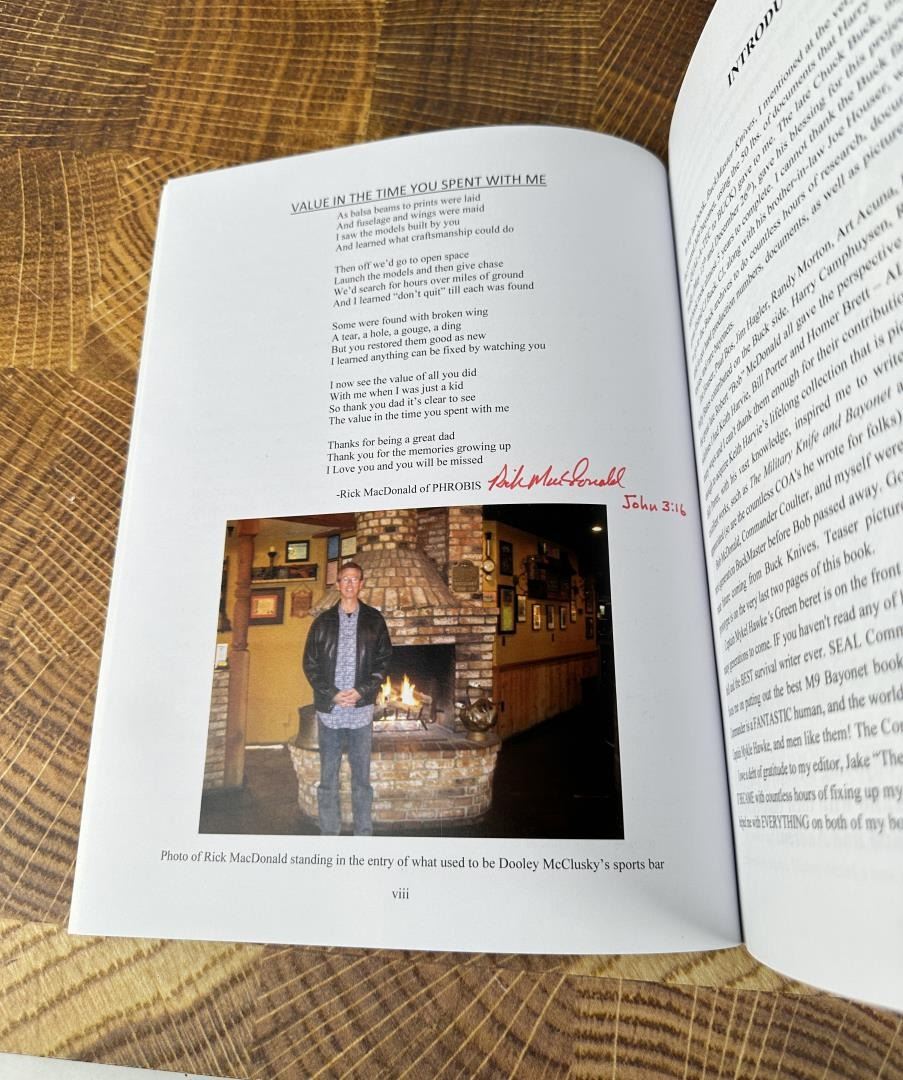 VALUE IN THE TIME YOU SPENT WITH ME
As balsa beams to prints were laid
And fuselage and wings were maid
I saw the models built by you
And learned what craftsmanship could do
Then off we'd go to open space
Launch the models and then give chase
We'd search for hours over miles of ground
And I learned “don't quit” till each was found
Some were found with broken wing
A tear, a hole, a gouge, a ding
But you restored them good as new
I learned anything can be fixed by watching you
I now see the value of all you did
With me when I was just a kid
So thank you dad it's clear to see
The value in the time you spent with me
Thanks for being a great dad
Thank you for the memories growing up
I Love you and you will be missed
-Rick MacDonald of PHROBIS Rick MacDonald
John 3:16
Photo of Rick MacDonald standing in the entry of what used to be Dooley McClusky's sports bar
viii
INTRODU
BuckMaster Knives, I mentioned at the
using the 50 lbs. of documents that Harry
BUCK) gave to me. The late Chuck Buck,
December 26th), gave his blessing for this project
years to complete. I cannot thank the Buck
along with his brother-in-law Joe Houser,
archives to do countless hours of research,
production numbers, documents, as well as
Jim Hagler, Randy Morton, Art Acuna,
contributed on the Buck side. Harry Camphuysen,
Robert “Bob” McDonald all gave the perspective
Keith Harvie, Bill Porter and Homer Brett –
and I can't thank them enough for their
Keith Harvie's lifelong collection that is
with his vast knowledge, inspired me to write
works, such as The Military Knife and Bayonet
are the countless COA's he wrote for folks)
Bob McDonald, Commander Coulter, and myself were
BuckMaster before Bob passed away.
coming from Buck Knives. Teaser
is on the very last two pages of this book.
Captain Mykel Hawke's Green beret is on the front
generations to come. IF you haven't read any of
and the BEST survival writer ever. SEAL
me on putting out the best M9 Bayonet book
Commander is a FANTASTIC human, and the world
Captain Mykel Hawke, and men like them! The
I owe a debt of gratitude to my editor, Jake “The
with countless hours of fixing up my
me with EVERYTHING on both of my